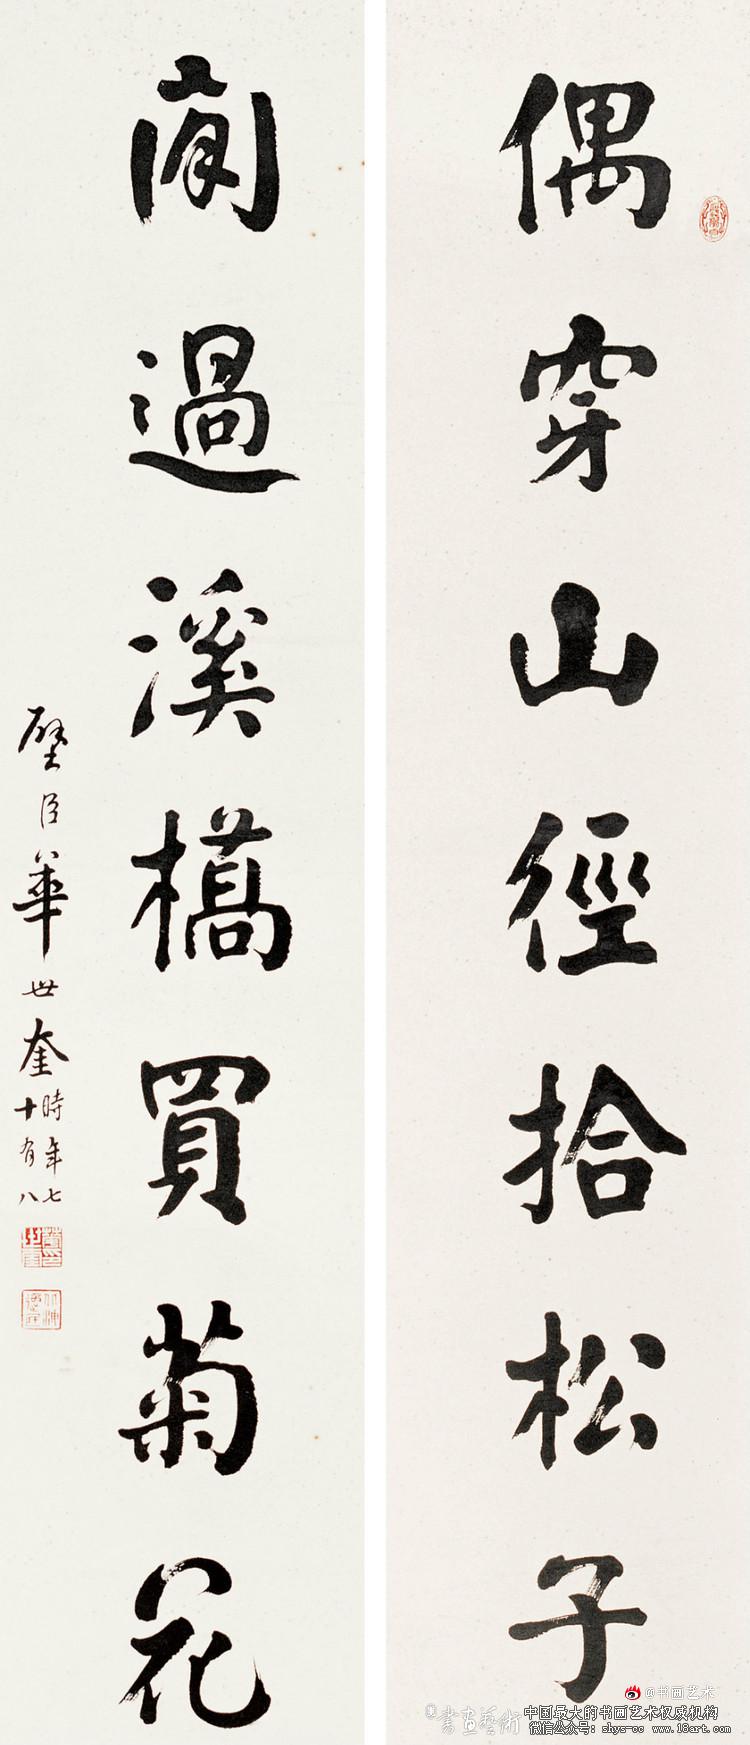 偶穿山徑拾松子
閒過溪橋買菊花
璧臣華世奎時年七
十有八
@书画艺术
書畫藝術
中国最大的书画艺术权威机构
微信公众号: shys-cc www.18art.com